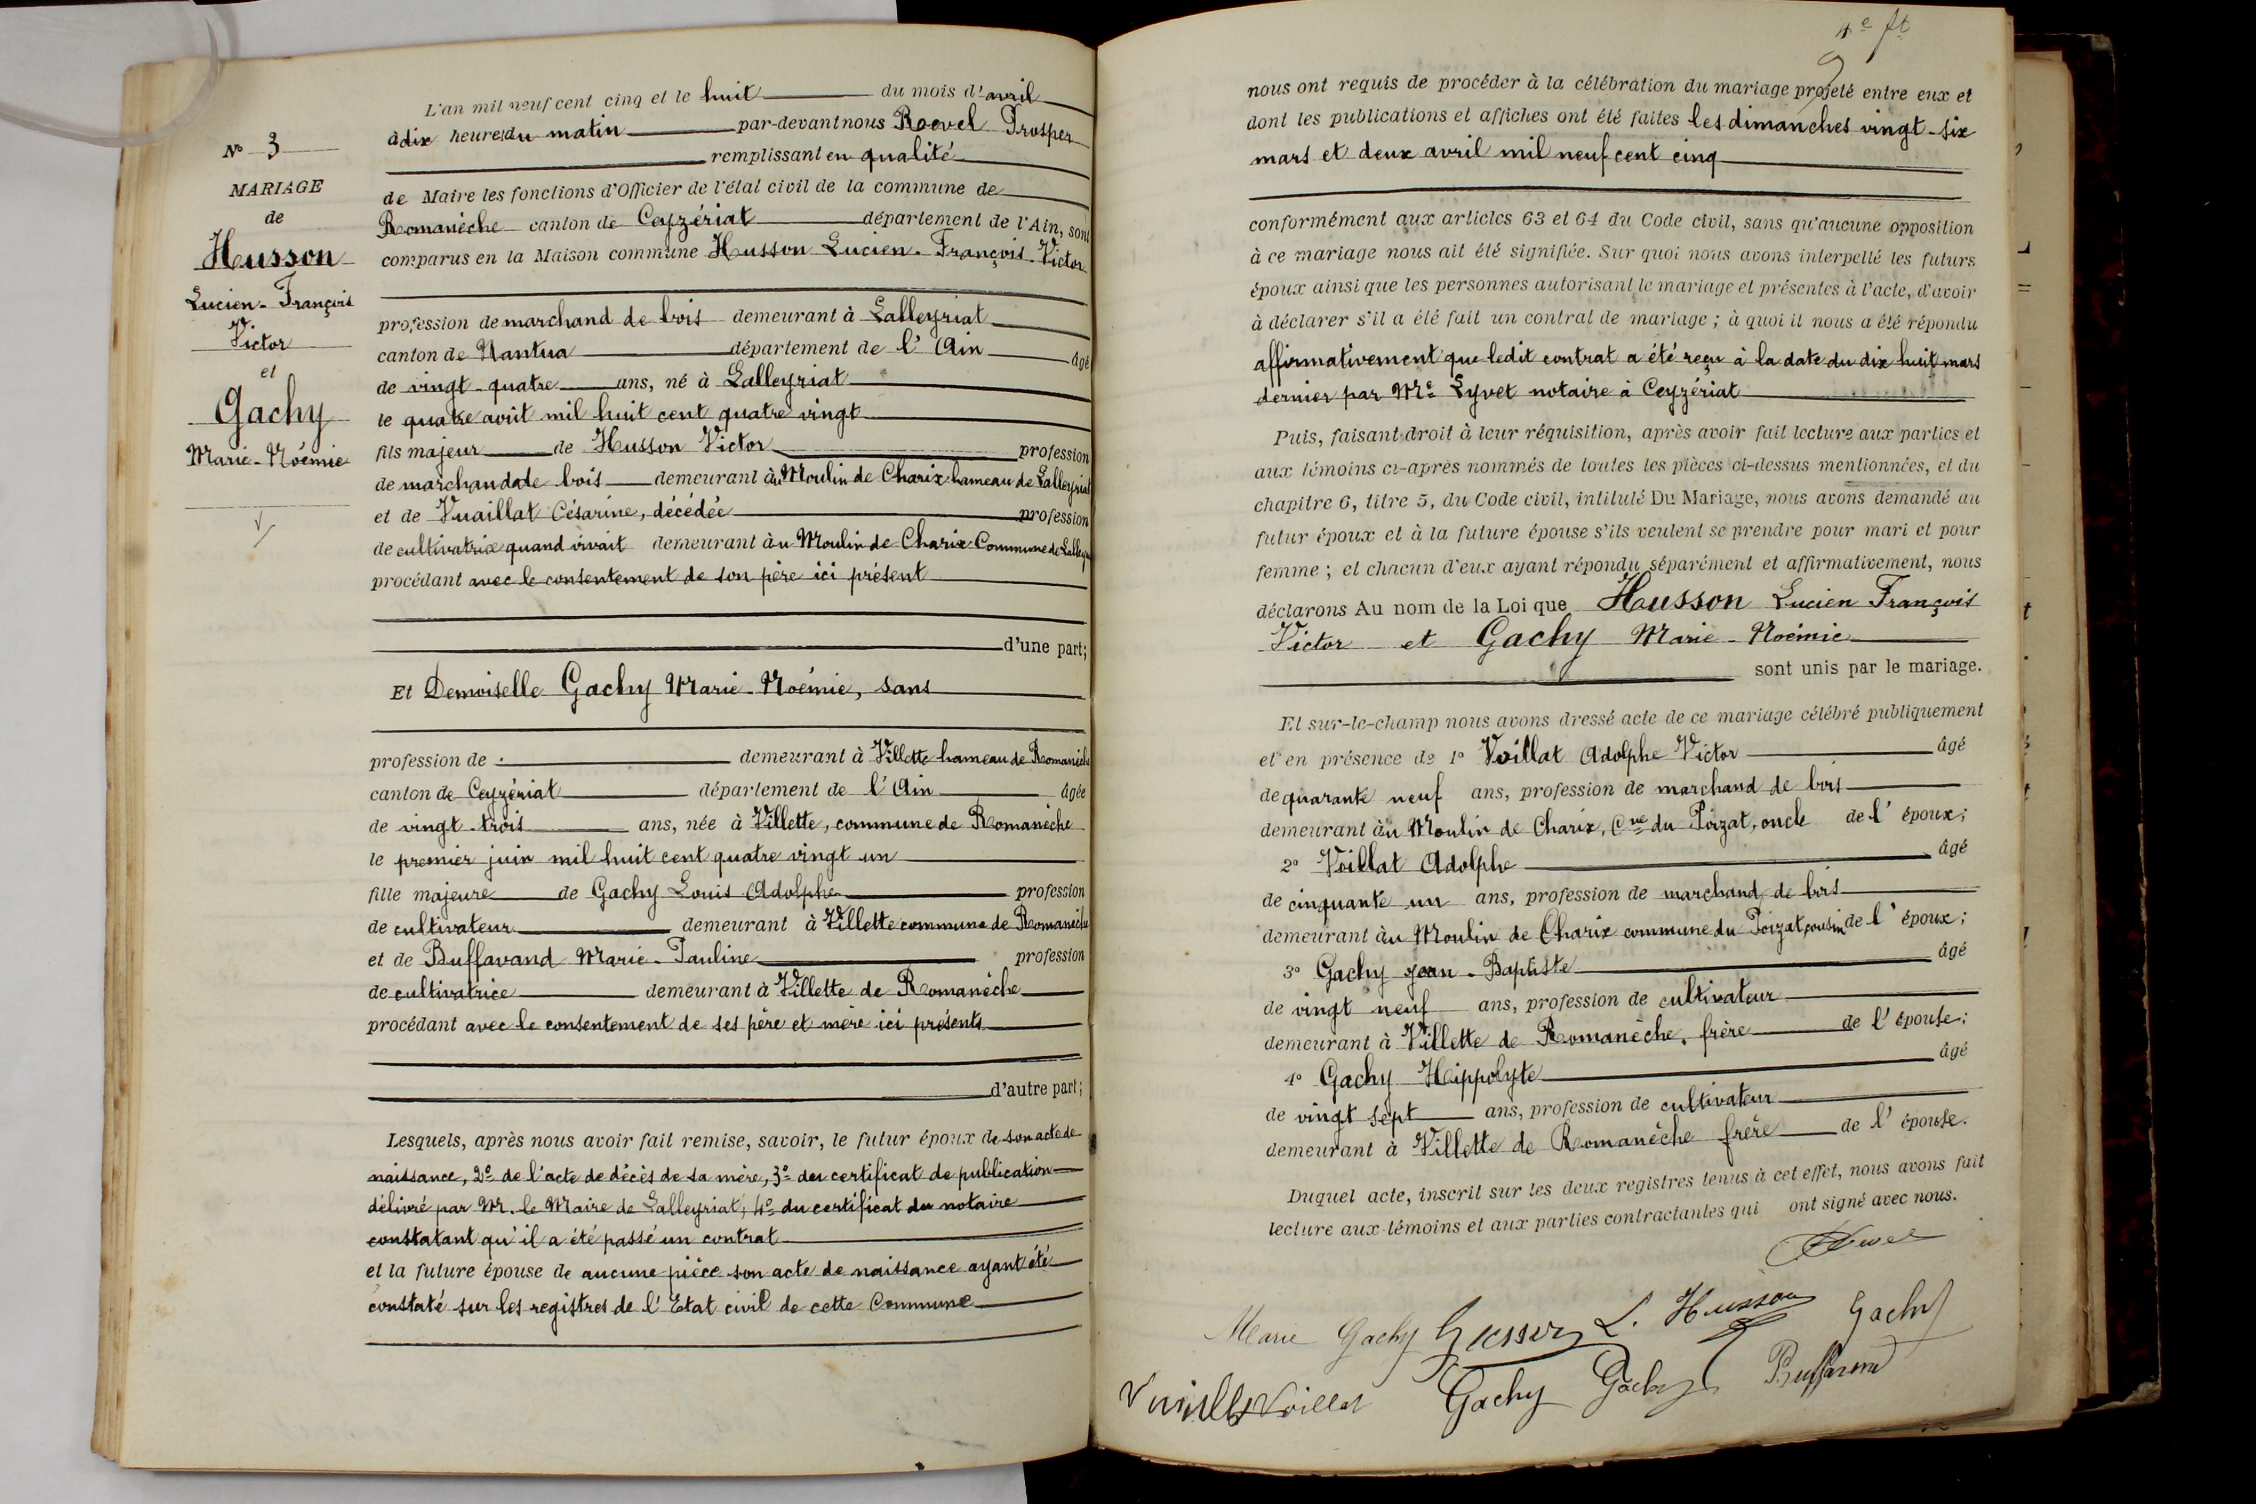 N° 3
MARIAGE
de
Husson
Lucien-François
Victor
et
Gachy
Marie-Noémie
L'an mil neuf cent cinq et le huit du mois d'avril
à dix heures du matin par-devant nous Revel Prosper
remplissant en qualité
de Maire les fonctions d'Officier de l'état civil de la commune de
Romanèche canton de Ceyzériat département de l'Ain, sont
comparus en la Maison commune Husson Lucien-François-Victor
profession de marchand de bois demeurant à Lalleyriat
canton de Nantua département de l'Ain âgé
de vingt-quatre ans, né à Lalleyriat
le quatre août mil huit cent quatre vingt
fils majeur de Husson Victor profession
de marchand de bois demeurant au Moulin de Charix hameau de Lalleyriat
et de Vuaillat Césarine, décédée profession
de cultivatrix quand vivait demeurant au Moulin de Charix Commune de Lalleyriat
procédant avec le consentement de son père ici présent
d'une part;
Et Demoiselle Gachy Marie-Noémie, sans
profession de demeurant à Villette hameau de Romanèche
canton de Ceyzériat département de l'Ain âgée
de vingt-trois ans, née à Villette, commune de Romanèche
le premier juin mil huit cent quatre vingt un
fille majeure de Gachy Louis Adolphe profession
de cultivateur demeurant à Villette commune de Romanèche
et de Buffavand Marie-Pauline profession
de cultivatrice demeurant à Villette de Romanèche
procédant avec le consentement de ses père et mère ici présents
d'autre part;
Lesquels, après nous avoir fait remise, savoir, le futur époux de son acte de
naissance, 2° de l'acte de décès de sa mère, 3° du certificat de publication
délivré par Mr. le Maire de Lalleyriat, 4° du certificat du notaire
constatant qu'il a été passé un contrat
et la future épouse de aucune pièce son acte de naissance ayant été
constaté sur les registres de l'Etat civil de cette Commune
4e ft
nous ont requis de procéder à la célébration du mariage projeté entre eux et
dont les publications et affiches ont été faites les dimanches vingt-six
mars et deux avril mil neuf cent cinq
conformément aux articles 63 et 64 du Code civil, sans qu'aucune opposition
à ce mariage nous ait été signifiée. Sur quoi nous avons interpellé les futurs
époux ainsi que les personnes autorisant le mariage et présentes à l'acte, d'avoir
à déclarer s'il a été fait un contrat de mariage ; à quoi il nous a été répondu
affirmativement que ledit contrat a été reçu à la date du dix huit mars
dernier par Me Lyvet notaire à Ceyzériat
Puis, faisant droit à leur réquisition, après avoir fait lecture aux parties et
aux témoins ci-après nommés de toutes les pièces ci-dessus mentionnées, et du
chapitre 6, titre 5, du Code civil, intitulé Du Mariage, nous avons demandé au
futur époux et à la future épouse s'ils veulent se prendre pour mari et pour
femme ; et chacun d'eux ayant répondu séparément et affirmativement, nous
déclarons Au nom de la Loi que Husson Lucien François
Victor et Gachy Marie-Noémie
sont unis par le mariage.
Et sur-le-champ nous avons dressé acte de ce mariage célébré publiquement
et en présence de 1° Voillat Adolphe Victor âgé
de quarante neuf ans, profession de marchand de bois
demeurant au Moulin de Charix, Cne du Poizat, oncle de l'époux;
2° Voillat Adolphe âgé
de cinquante un ans, profession de marchand de bois
demeurant au Moulin de Charix commune du Poizat, cousin de l'époux;
3° Gachy Jean-Baptiste âgé
de vingt neuf ans, profession de cultivateur
demeurant à Villette de Romanèche, frère de l'épouse;
4° Gachy Hippolyte âgé
de vingt sept ans, profession de cultivateur
demeurant à Villette de Romanèche frère de l'épouse.
Duquel acte, inscrit sur les deux registres tenus à cet effet, nous avons fait
lecture aux témoins et aux parties contractantes qui ont signé avec nous.
Marie Gachy Husson L. Husson Gachy
Voillat Gachy Gachy Buffavand